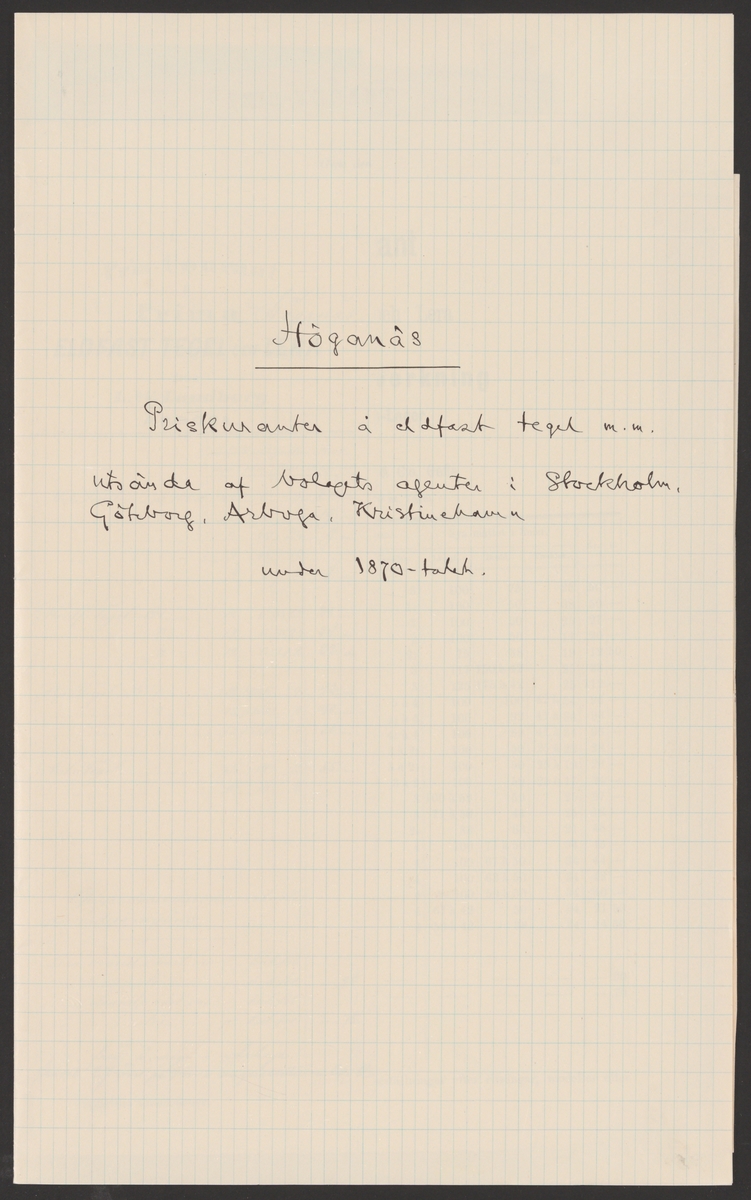 Höganäs
Priskuranter å eldfast tegel m.m.
utsända af bolagets agenter i Stockholm,
Göteborg, Arboga, Kristinehamn
under 1870-talet.